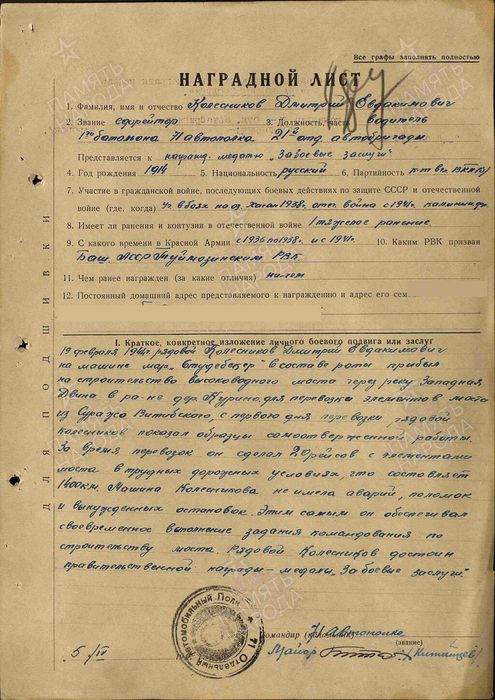 Все графы заполнять полностью
НАГРАДНОЙ ЛИСТ
1. Фамилия, имя и отчество Колесников Дмитрий Овдакимович
2. Звание ефрейтор 3. Должность, часть водитель
1го батальона 71 автополка 21й отд. автобригады
Представляется к наград. медалью „За боевые заслуги"
4. Год рождения 1914 5. Национальность русский 6. Партийность к-т вкп(б)
7. Участие в гражданской войне, последующих боевых действиях по защите СССР и отечественной
войне (где, когда) Уч. в боях на оз. Хасан 1938г. отеч. война с 1941г.
8. Имеет ли ранения и контузии в отечественной войне 1 тяжелое ранение.
9. С какого времени в Красной Армии с 1936 по 1938г. и с 1941г. 10. Каким РВК призван
Баш. АССР Туймазинским РВК
11. Чем ранее награжден (за какие отличия) ничем
12. Постоянный домашний адрес представляемого к награждению и адрес его сем
ДЛЯ ПОДШИВКИ
I. Краткое, конкретное изложение личного боевого подвига или заслуг
19 февраля 1944г. рядовой Колесников Дмитрий Овдакимович
на машине мар. „Студебекер" в составе роты прибыл
на строительство высоководного моста через реку Западная
Двина в ра-не дер. Курино, для перевозки элементов моста
из Суража Витебского, с первого дня перевозки рядовой
Колесников показал образцы самоотверженной работы.
За время перевозок он сделал 20 рейсов с элементами
моста в трудных дорожных условиях, что составляет
1400 км. Машина Колесникова не имела аварий, поломок
и вынужденных остановок. Этим самым он обеспечивал
своевременное выполнение задания командования по
строительству моста. Рядовой Колесников достоин
правительственной награды – медали „За боевые заслуги".
Командир (начальник) 71 автополка
(звание)
Майор (Китайцев)
5/IV
71 Отдельный Автомобильный Полк
ПАМЯТЬ НАРОДА